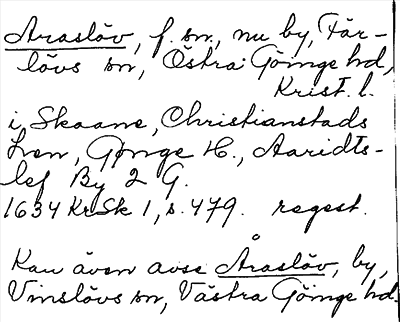 Araslöv, f. sn, nu by, Fär-
lövs sn, Östra Göinge hd,
Krist. l.
i Skaane, Christianstads
Len, Gønge H., Aaridts-
lef By 2 G.
1634 KrSk 1, s. 479. regest.
Kan även avse Åraslöv, by,
Vinslövs sn, Västra Göinge hd.